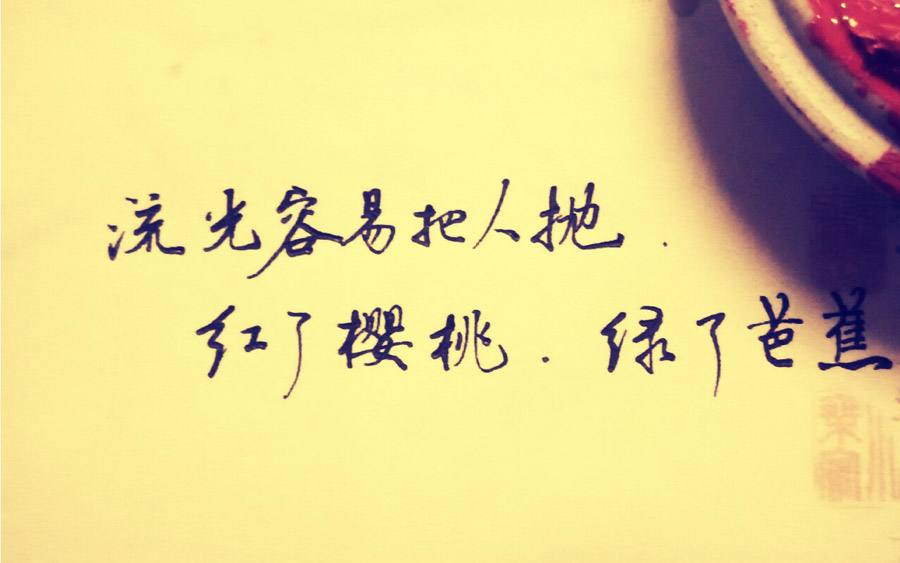 流光容易把人抛.
红了樱桃.绿了芭蕉